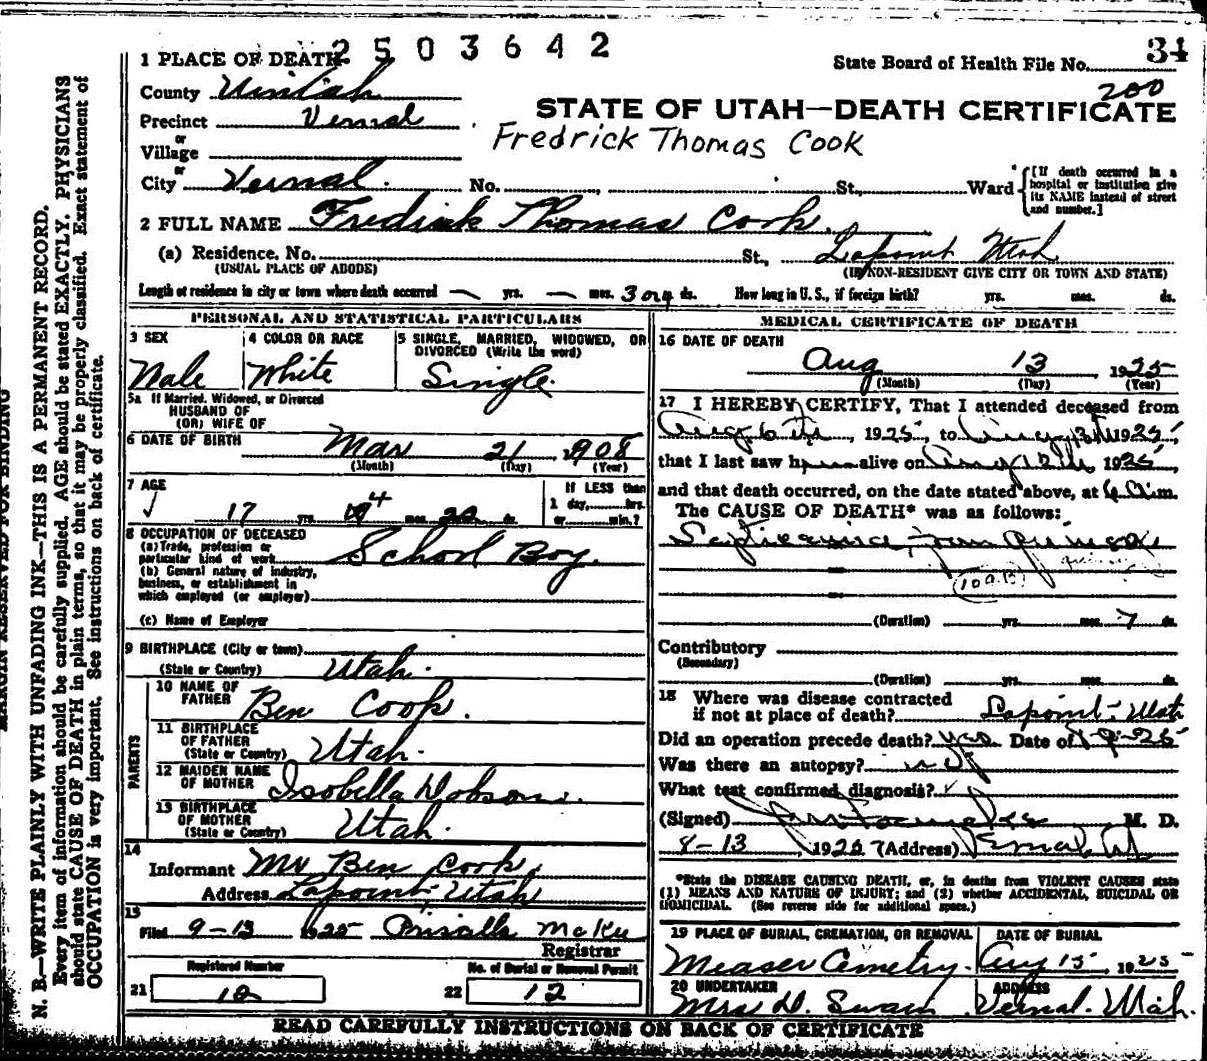 2503642
34
1 PLACE OF DEATH
State Board of Health File No.
200
County Uintah
STATE OF UTAH—DEATH CERTIFICATE
Precinct Vernal
Fredrick Thomas Cook
or
Village
or
City Vernal. No. St., Ward
[If death occurred in a hospital or institution give its NAME instead of street and number.]
2 FULL NAME Fredrick Thomas Cook.
(a) Residence. No. St., Lapoint Utah
(USUAL PLACE OF ABODE) (IF NON-RESIDENT GIVE CITY OR TOWN AND STATE)
Length of residence in city or town where death occurred — yrs. — mos. 3 ds. How long in U. S., if foreign birth? yrs. mos. ds.
PERSONAL AND STATISTICAL PARTICULARS
3 SEX
Male
4 COLOR OR RACE
White
5 SINGLE, MARRIED, WIDOWED, OR DIVORCED (Write the word)
Single.
5a If Married, Widowed, or Divorced
HUSBAND OF
(OR) WIFE OF
6 DATE OF BIRTH Mar 21 1908
(Month) (Day) (Year)
7 AGE
17 yrs. 4 mos. ds.
If LESS than
1 day, hrs.
or min.?
8 OCCUPATION OF DECEASED
(a) Trade, profession or
particular kind of work School Boy.
(b) General nature of industry,
business, or establishment in
which employed (or employer)
(c) Name of Employer
9 BIRTHPLACE (City or town)
(State or Country) Utah.
PARENTS
10 NAME OF
FATHER Ben Cook.
11 BIRTHPLACE
OF FATHER
(State or Country) Utah.
12 MAIDEN NAME
OF MOTHER Isobella Dobson.
13 BIRTHPLACE
OF MOTHER
(State or Country) Utah.
14
Informant Mr Ben Cook,
Address Lapoint, Utah
15
Filed 9-13 1925 Prisilla McKee
Registrar
Registered Number
21 12
No. of Burial or Removal Permit
22 12
MEDICAL CERTIFICATE OF DEATH
16 DATE OF DEATH
Aug 13 1925
(Month) (Day) (Year)
17 I HEREBY CERTIFY, That I attended deceased from
Aug 6th, 1925, to Aug 13th 1925,
that I last saw h alive on Aug 12th, 1925,
and that death occurred, on the date stated above, at 6 a.m.
The CAUSE OF DEATH* was as follows:
Septicemia, from
(109B)
(Duration) yrs. mos. 7 ds.
Contributory
(Secondary)
(Duration) yrs. mos. ds.
18 Where was disease contracted
if not at place of death? Lapoint, Utah
Did an operation precede death? yes Date of 8-9-25
Was there an autopsy? no
What test confirmed diagnosis?
(Signed) M. D.
8-13, 1925 (Address) Vernal, Ut
*State the DISEASE CAUSING DEATH, or, in deaths from VIOLENT CAUSES state
(1) MEANS AND NATURE OF INJURY; and (2) whether ACCIDENTAL, SUICIDAL OR
HOMICIDAL. (See reverse side for additional space.)
19 PLACE OF BURIAL, CREMATION, OR REMOVAL
Measer Cemetry.
DATE OF BURIAL
Aug 15, 1925
20 UNDERTAKER
Mrs D. Swain
ADDRESS
Vernal. Utah.
READ CAREFULLY INSTRUCTIONS ON BACK OF CERTIFICATE
MARGIN RESERVED FOR BINDING
N. B.—WRITE PLAINLY WITH UNFADING INK—THIS IS A PERMANENT RECORD.
Every item of information should be carefully supplied. AGE should be stated EXACTLY. PHYSICIANS
should state CAUSE OF DEATH in plain terms, so that it may be properly classified. Exact statement of
OCCUPATION is very important. See instructions on back of certificate.